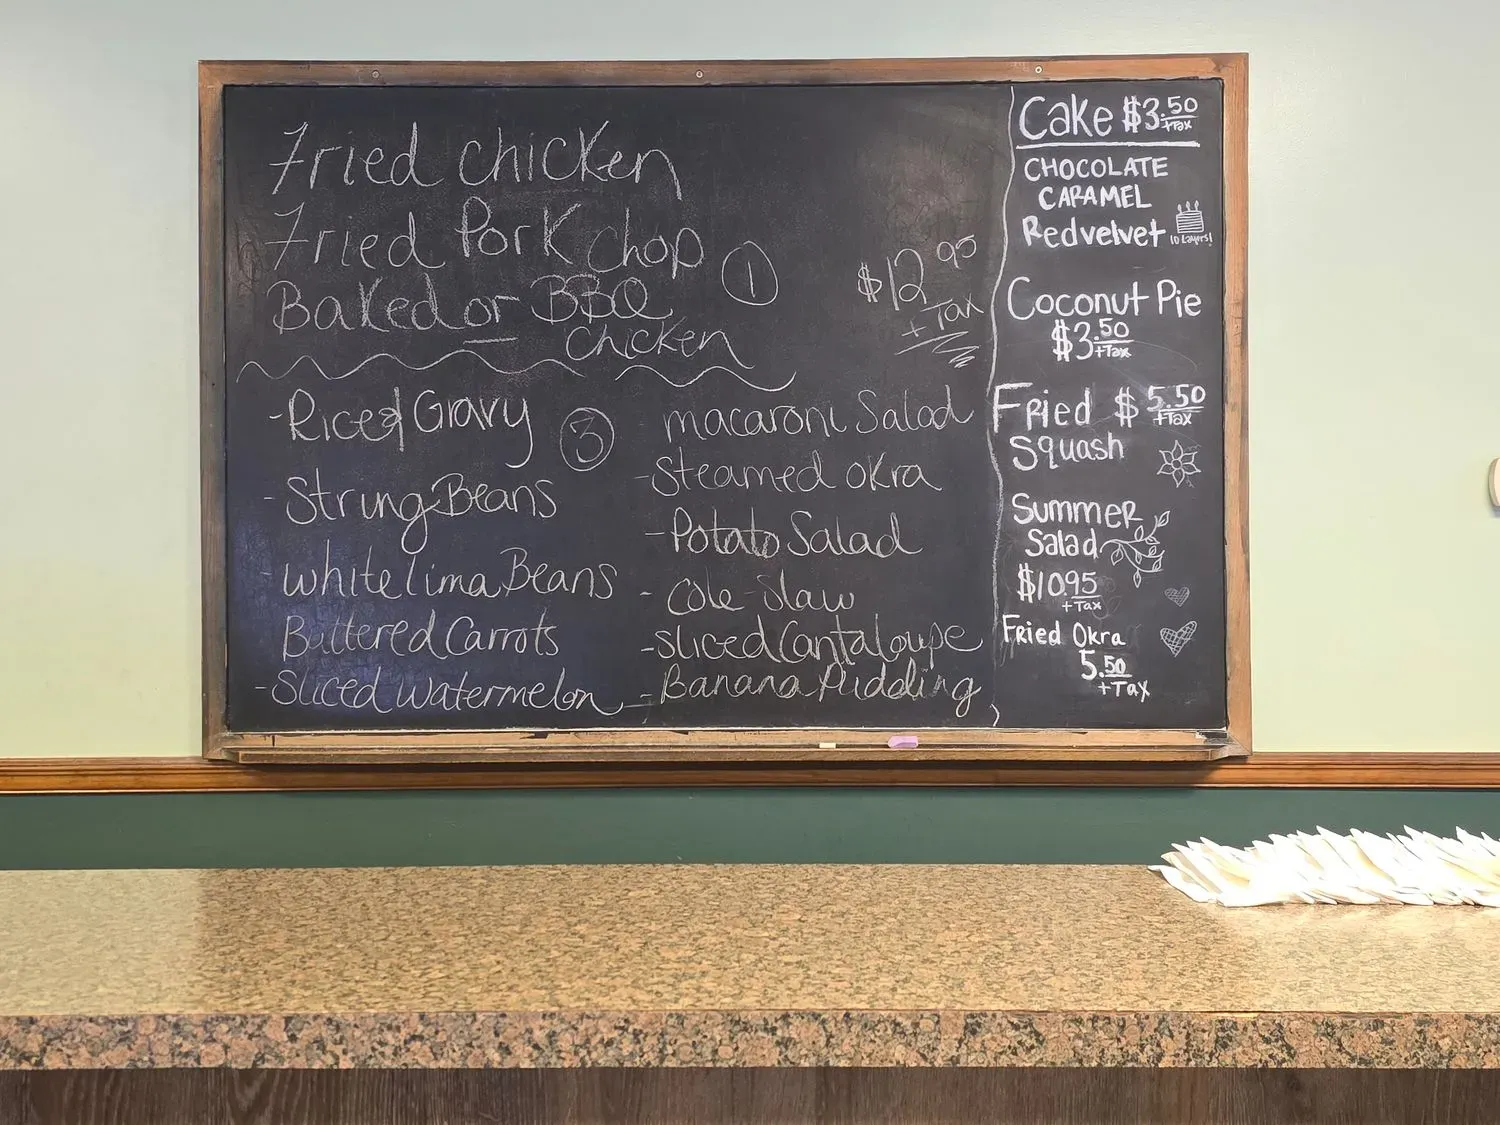 Fried chicken
Fried Pork chop
Baked or BBQ
chicken
1
$12.95
+ Tax
- Rice & Gravy
3
- String Beans
- white lima Beans
Buttered Carrots
- Sliced watermelon
macaroni Salad
- Steamed okra
- Potato Salad
- Cole Slaw
- Sliced Cantaloupe
- Banana Pudding
Cake $3.50
+Tax
CHOCOLATE
CARAMEL
Redvelvet
10 Layers!
Coconut Pie
$3.50
+Tax
Fried $5.50
+Tax
Squash
Summer
Salad
$10.95
+Tax
Fried Okra
5.50
+Tax